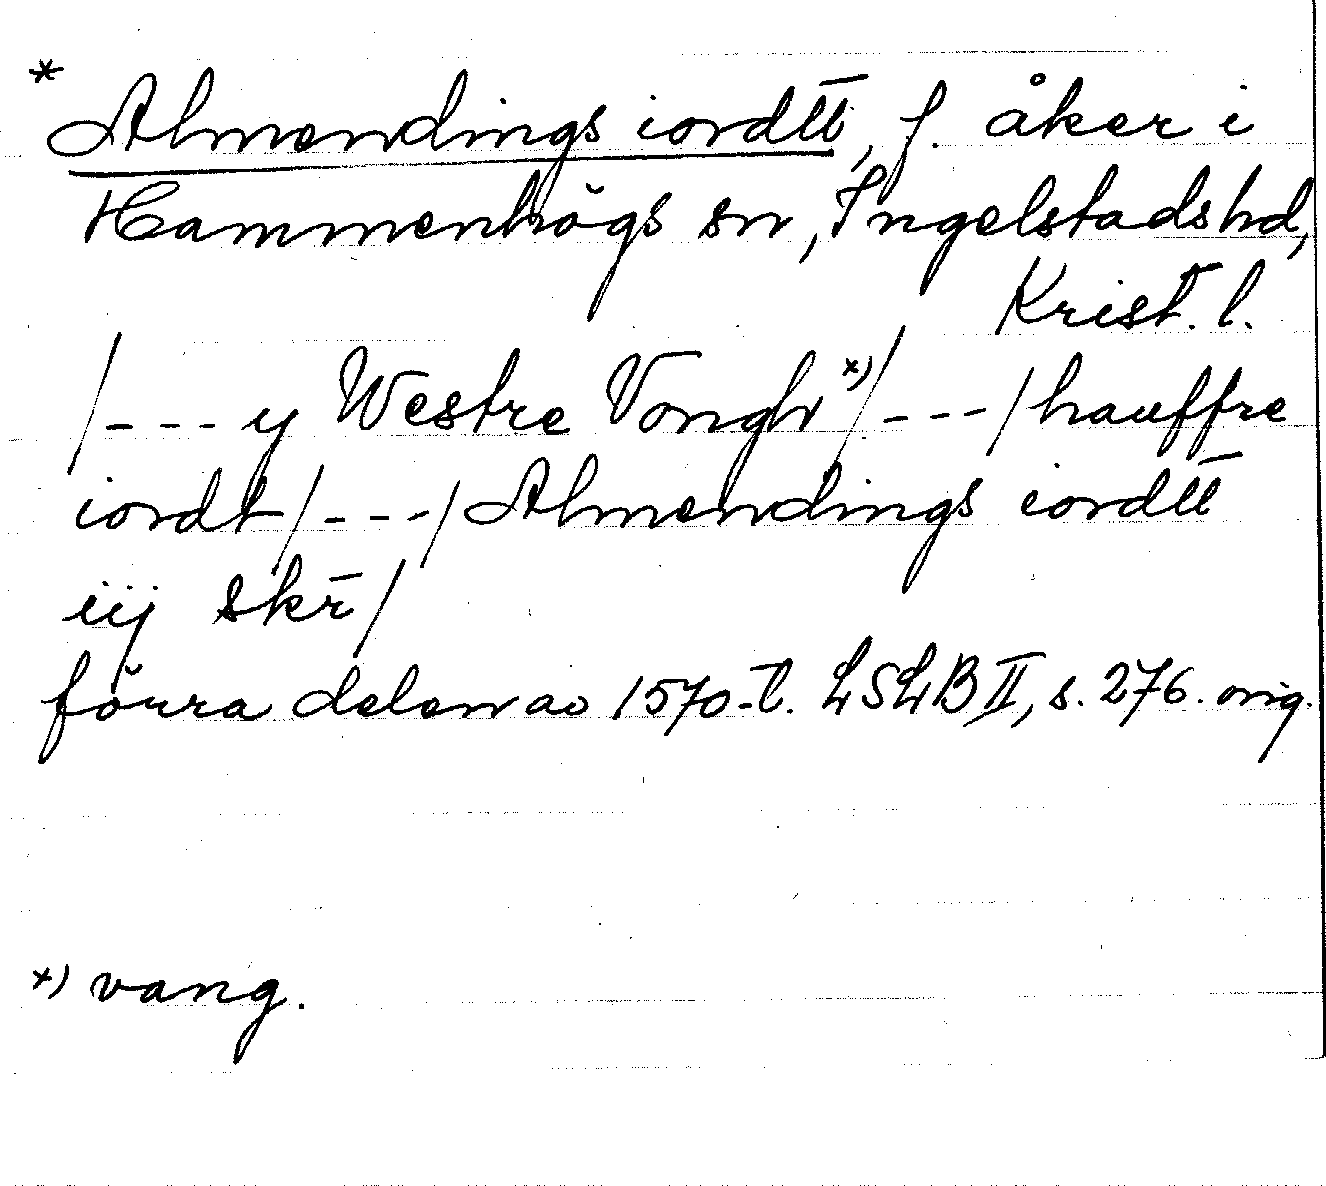 * Almendings iordtt̅, f. åker i
Hammenhögs sn, Ingelstads hd,
Krist. l.
/--- y Westre Vongh *) /---/ hauffre
iordt /---/ Almendings iordtt̅
iij skr̅ /
förra delen av 1570-t. LSLB II, s. 276. orig.
*) vang.